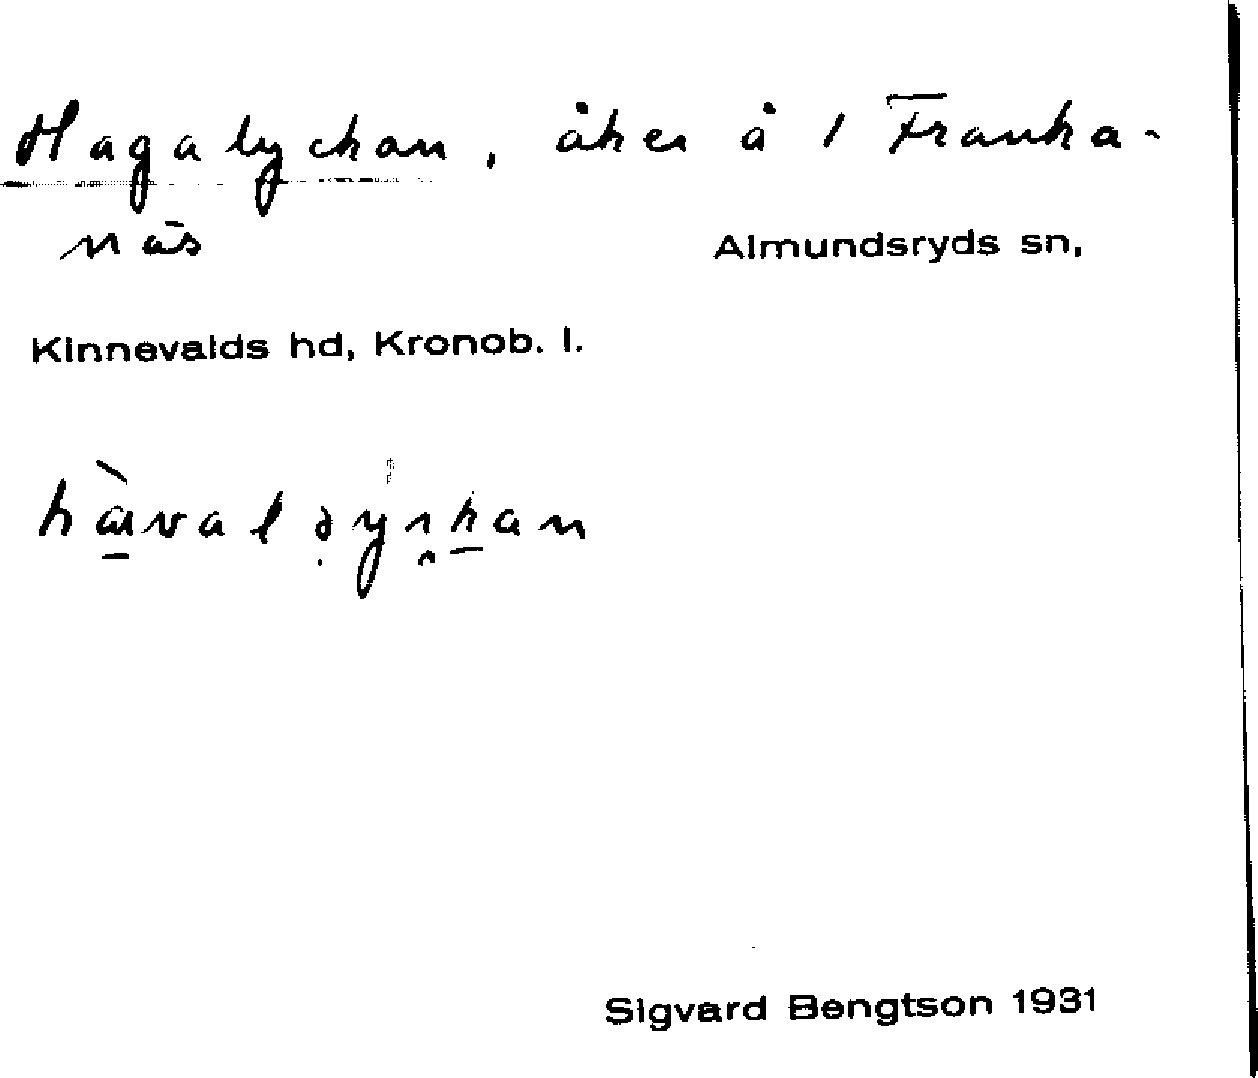 Hagalyckan, åker å 1 Franka-
näs
Almundsryds sn,
Kinnevalds hd, Kronob. l.
Sigvard Bengtson 1931